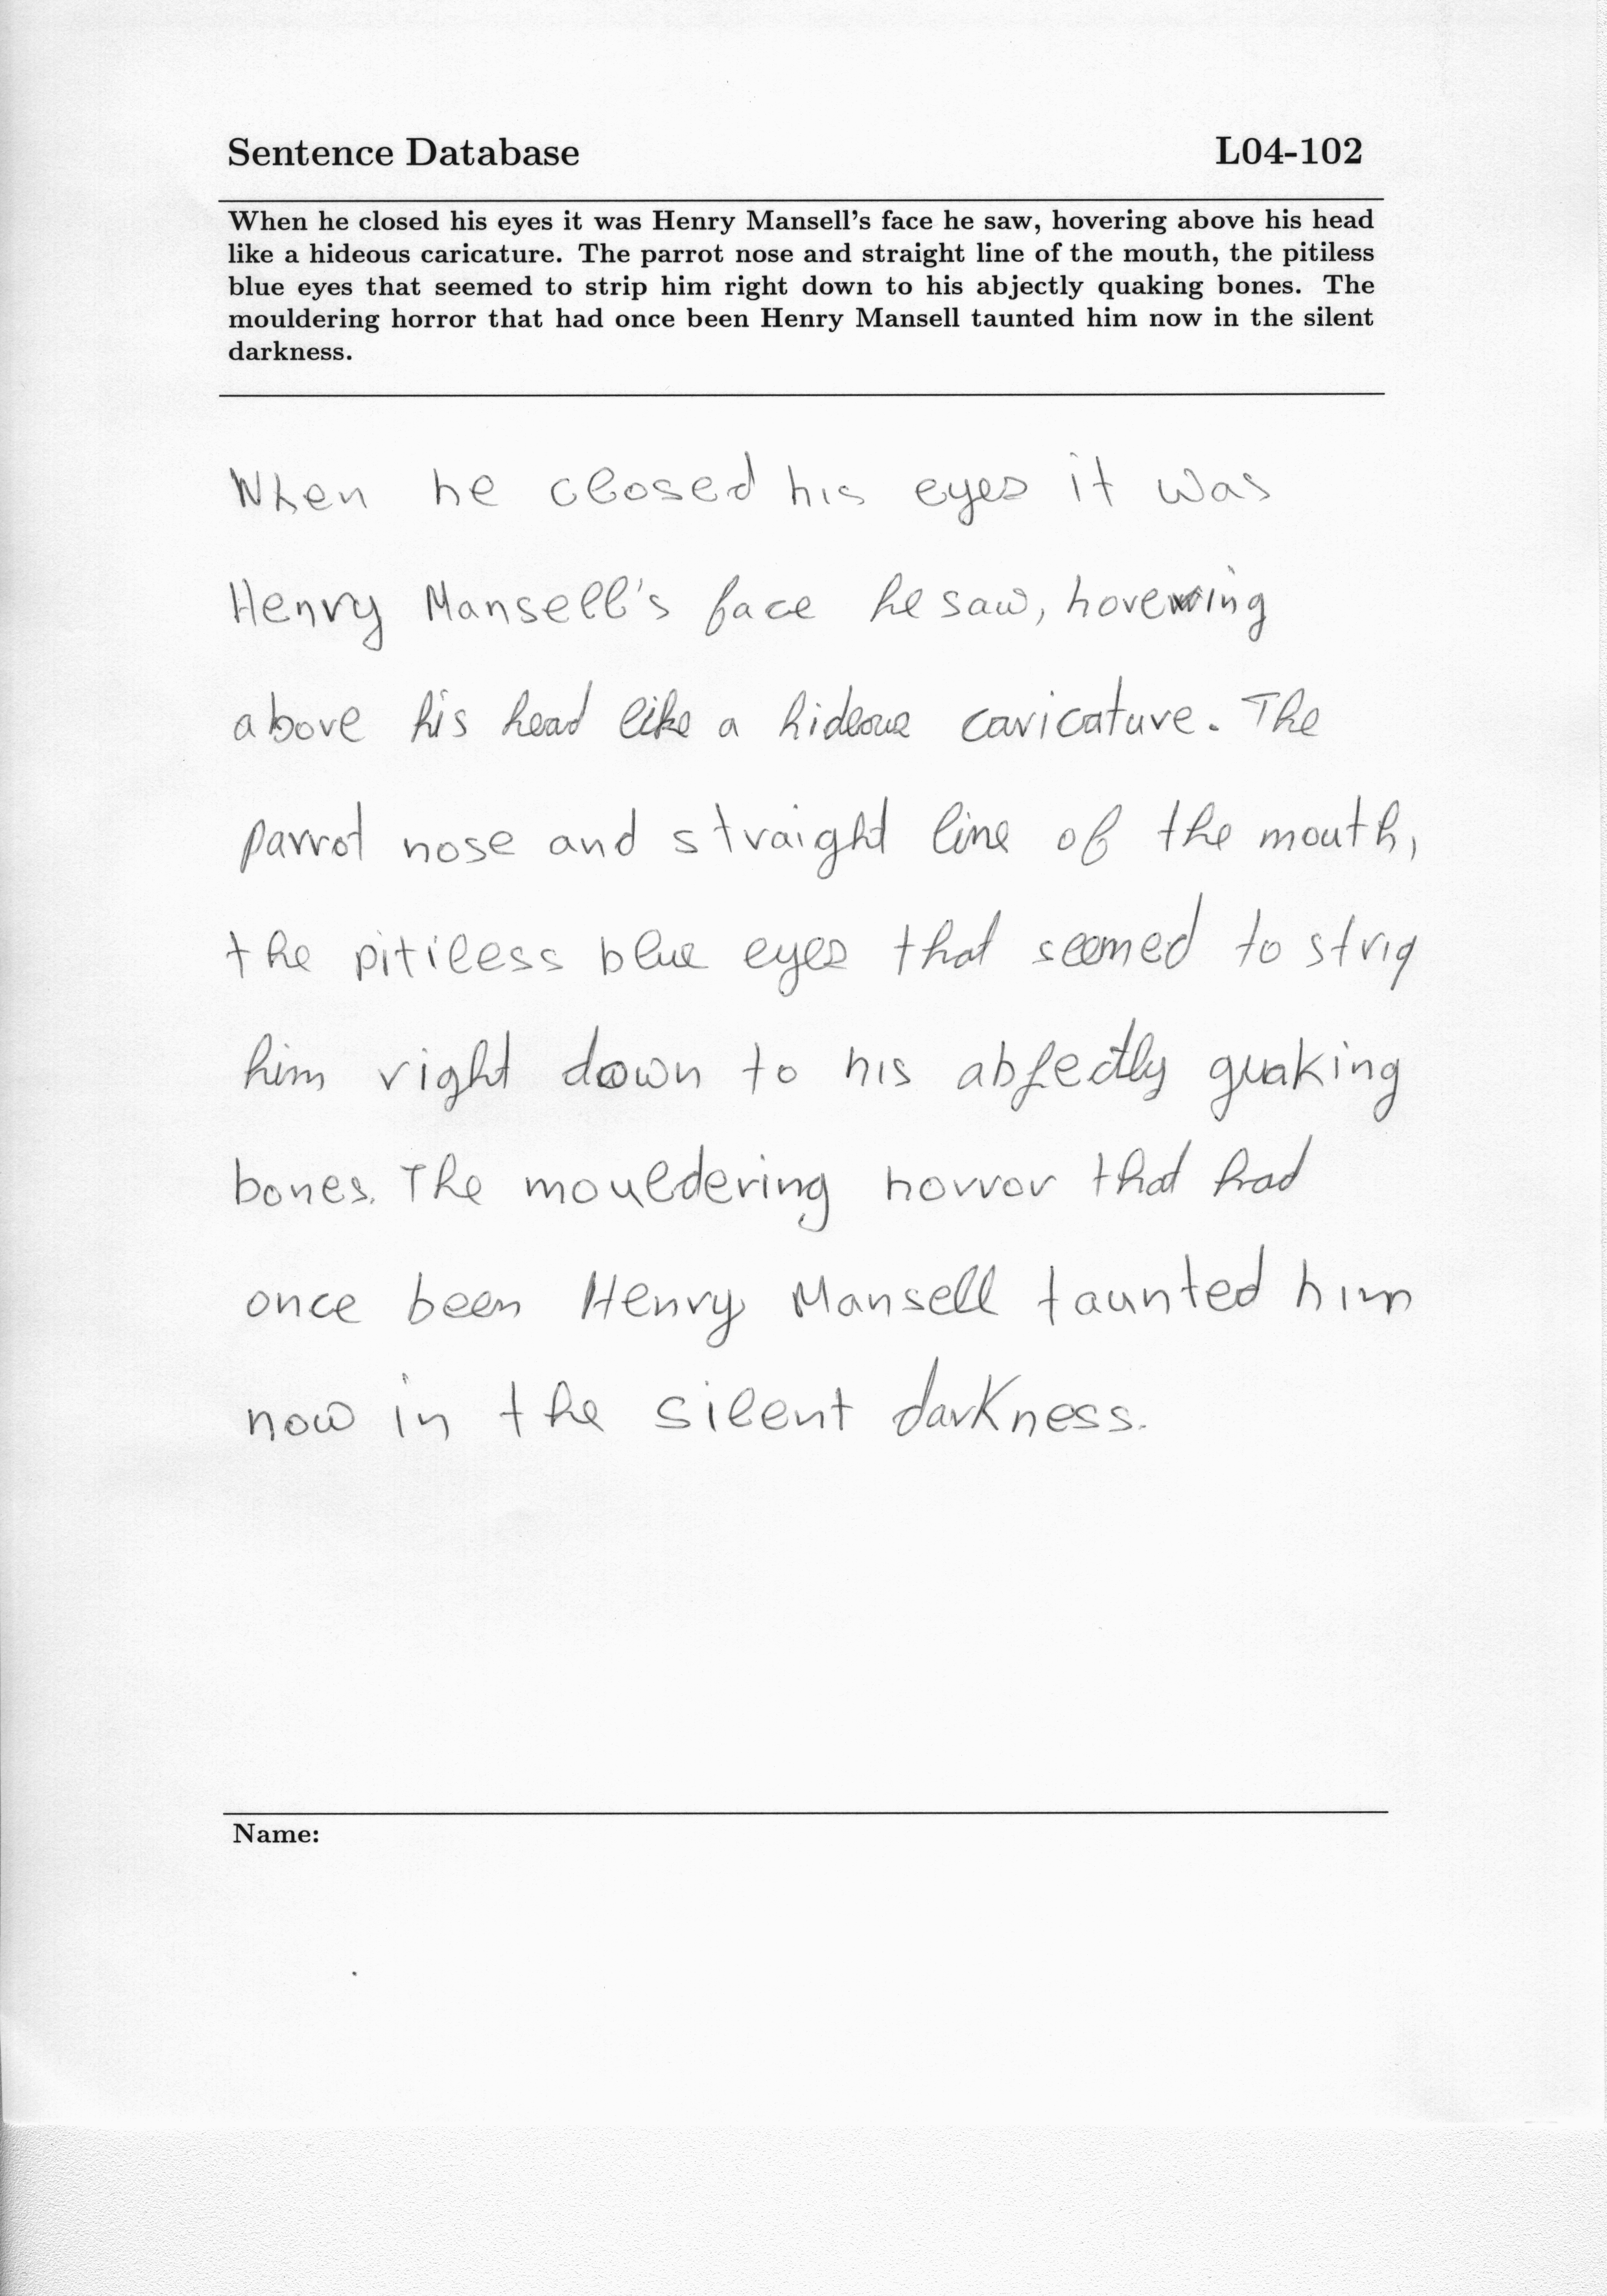 Sentence Database L04-102
When he closed his eyes it was Henry Mansell's face he saw, hovering above his head
like a hideous caricature. The parrot nose and straight line of the mouth, the pitiless
blue eyes that seemed to strip him right down to his abjectly quaking bones. The
mouldering horror that had once been Henry Mansell taunted him now in the silent
darkness.
When he closed his eyes it was
Henry Mansell's face he saw, hovering
above his head like a hideous caricature. The
parrot nose and straight line of the mouth,
the pitiless blue eyes that seemed to strip
him right down to his abjectly quaking
bones. The mouldering horror that had
once been Henry Mansell taunted him
now in the silent darkness.
Name: